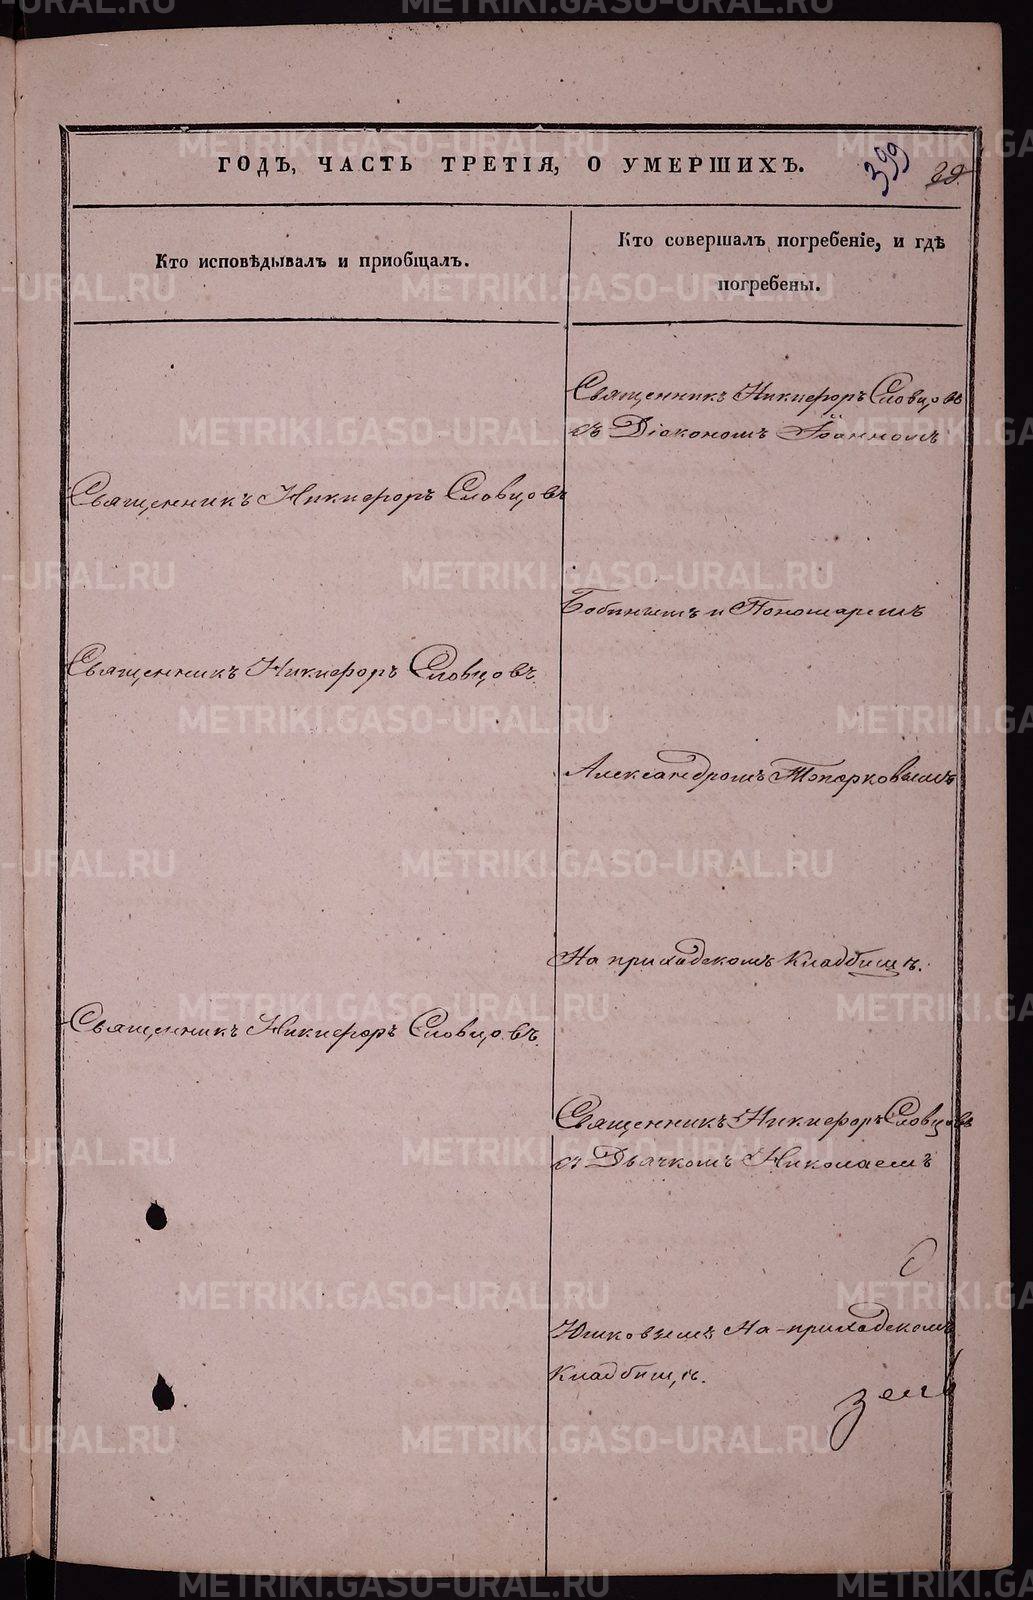 ГОДЪ, ЧАСТЬ ТРЕТІЯ, О УМЕРШИХЪ.
399
29.
Кто исповѣдывалъ и пріобщалъ.
Кто совершалъ погребеніе, и гдѣ
погребены.
Священникъ Никифоръ Словцовъ
съ Діакономъ Іоанномъ
Священникъ Никифоръ Словцовъ
Бобинымъ и Пономаремъ
Священникъ Никифоръ Словцовъ.
Александромъ Топорковымъ
На приходскомъ кладбищѣ.
Священникъ Никифоръ Словцовъ.
Священникъ Никифоръ Словцовъ
съ Дьячкомъ Николаемъ
Юшковымъ На-приходскомъ
Кладбищѣ.
METRIKI.GASO-URAL.RU